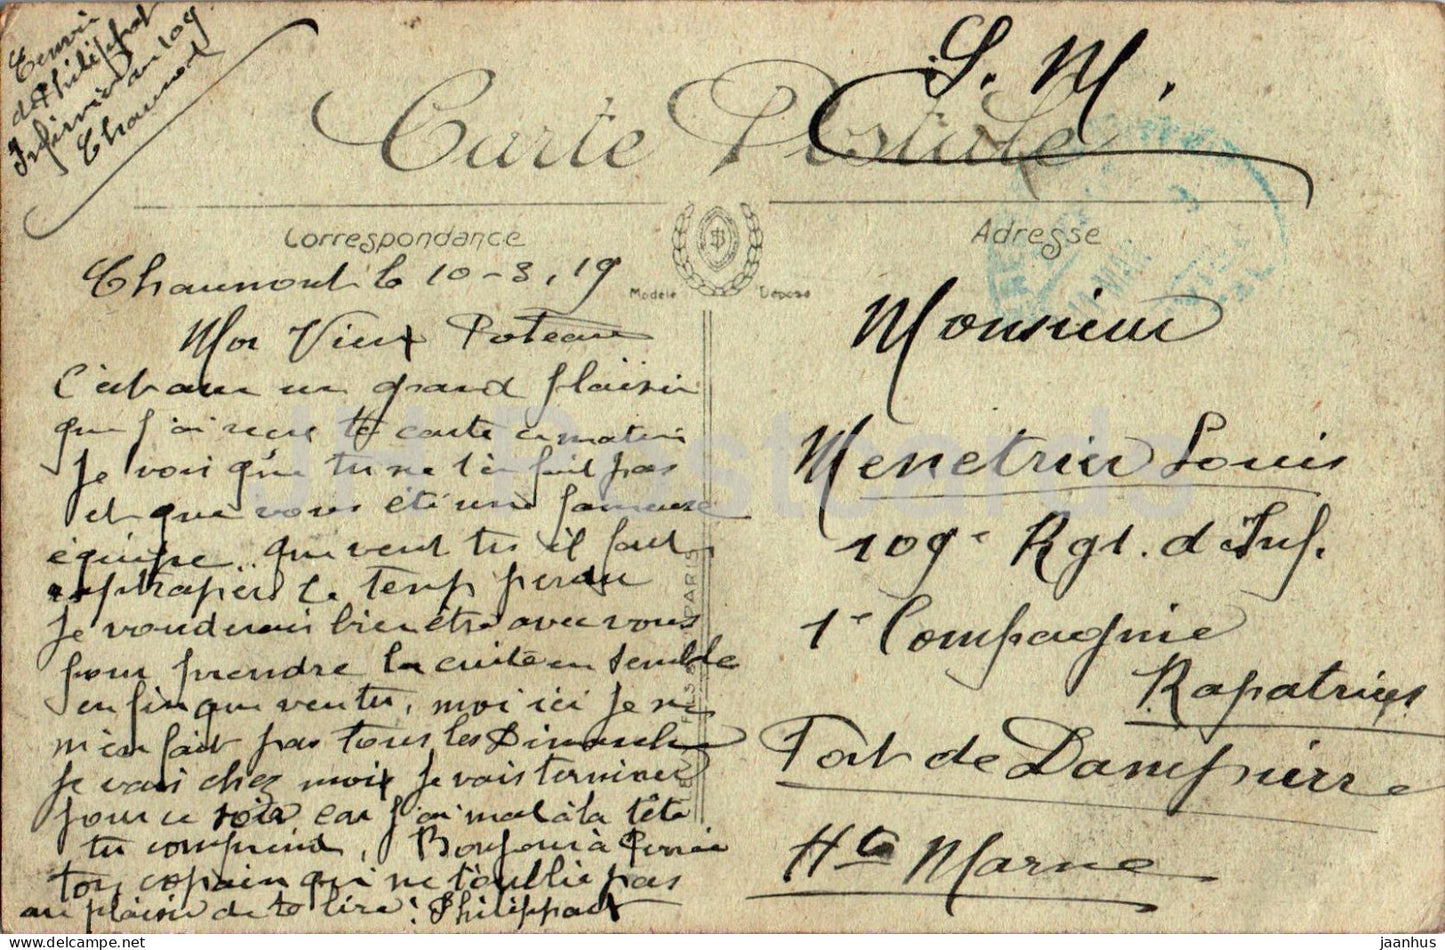 Envoi
de Philippot
Infirmier au 109
Chaumont
S. M.
Carte Postale
Correspondance
Adresse
Modèle Déposé
Chaumont le 10-3,19
Mon Vieux Poteau
C'est avec un grand plaisir
que j'ai recu ta carte ce matin
Je voi que tu ne t'en fait pas
et que vous été une fameuse
équipe.. que veut tu il faut
raptraper le temp perdu
Je voudrais bien être avec vous
pour prendre la cuite ensemble
enfin que ventu, moi ici je ne
m'en fait pas tous les Dimanche
Je vais chez moi, Je vais terminer
pour ce soir car j'ai mal à la tête
tu comprend, Bonjour à
ton copain qui ne t'oublie pas
au plaisir de te lire: Philippot
LEVY FILS & PARIS
Monsieur
Menetrier Louis
109e Rgt. d'Inf.
1e Compagnie
Rapatriées
Fort de Dampierre
Hte Marne
JH Postcards
jaanhus @ delcampe.net